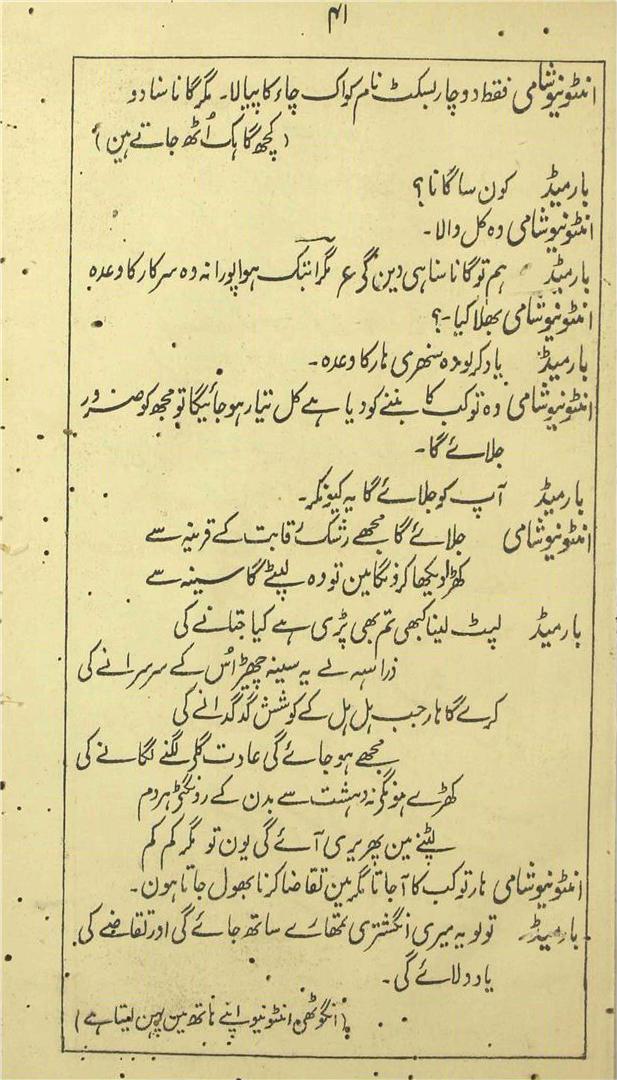 ۴۱
انٹونیو شامی فقط دو چار بسکٹ نام کو اک چاء کا پیالا۔ مگر گانا سنا دو
(کچھ گاہک اُٹھ جاتے ہین)
بارمیڈ کون سا گانا؟
انٹونیو شامی وہ کل والا۔
بارمیڈ ہم تو گانا سنا ہی دین گی ع مگر ابتک ہوا پورا نہ وہ سرکار کا وعدہ
انٹونیو شامی بھلا کیا۔؟
بارمیڈ یاد کر لو وہ سنھری ہار کا وعدہ۔
انٹونیو شامی وہ تو کب کا بننے کو دیا ہے کل تیار ہو جائیگا تو مجھ کو ضرور
جلائے گا۔
بارمیڈ آپ کو جلائے گا یہ کیونکر۔
انٹونیو شامی جلائے گا مجھے رشک رقابت کے قرینہ سے
کھڑا دیکھا کرونگا مین تو وہ لپٹے گا سینہ سے
بارمیڈ لپٹ لینا کبھی تم بھی پڑی ہے کیا جتانے کی
ذرا سہ لے یہ سینہ چھیڑ اُس کے سرسرانے کی
کرے گا ہار جب ہل ہل کے کوشش گدگدانے کی
مجھے ہو جائے گی عادت گلی لگنے لگانے کی
کھڑے ہونگر نہ دہشت سے بدن کے رونگٹی ہر دم
لپٹنے مین پھریری آئے گی یون تو مگر کم کم
انٹونیو شامی ہار تو کب کا آجاتا مگر مین تقاضا کرنا بھول جاتا ہون۔
بارمیڈ تو لو یہ میری انگشتری تمھارے ساتھ جائے گی اور تقاضے کی
یاد دلائے گی۔
(انگوٹھی انٹونیو اپنے ہاتھ مین پہن لیتا ہے)